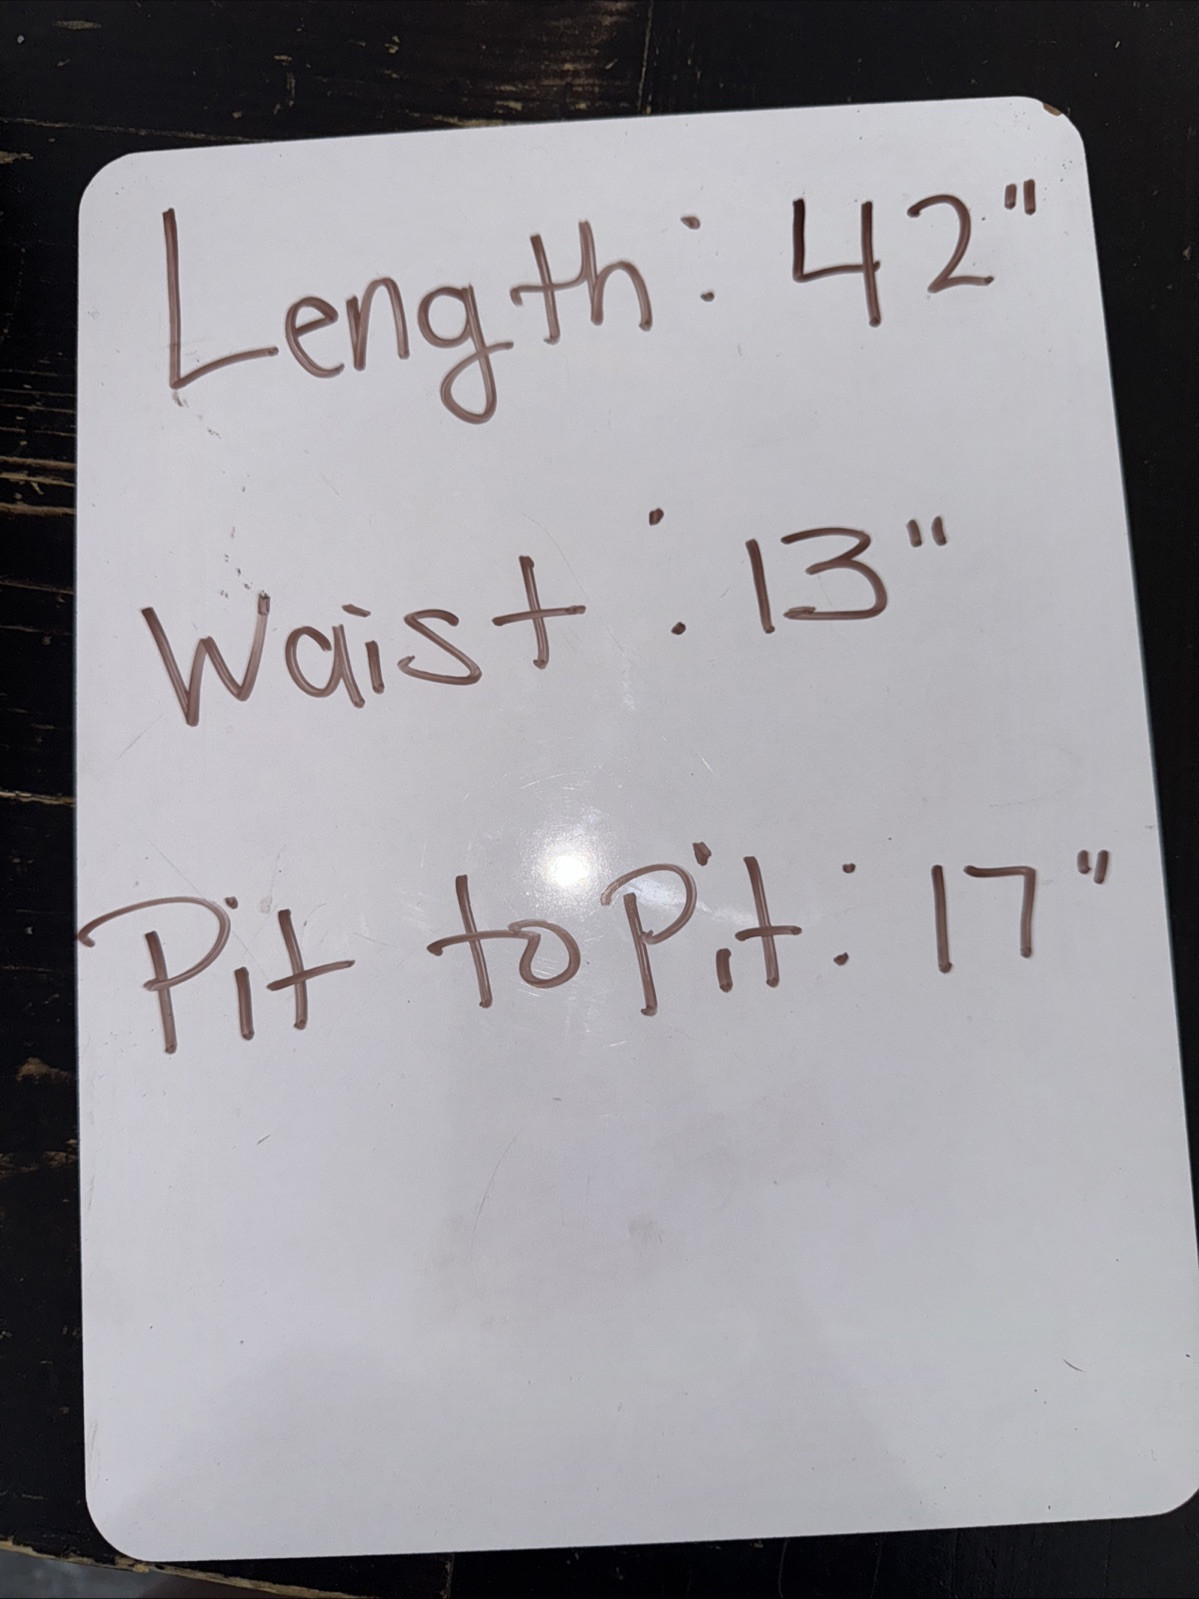 Length: 42"
Waist: 13"
Pit to Pit: 17"